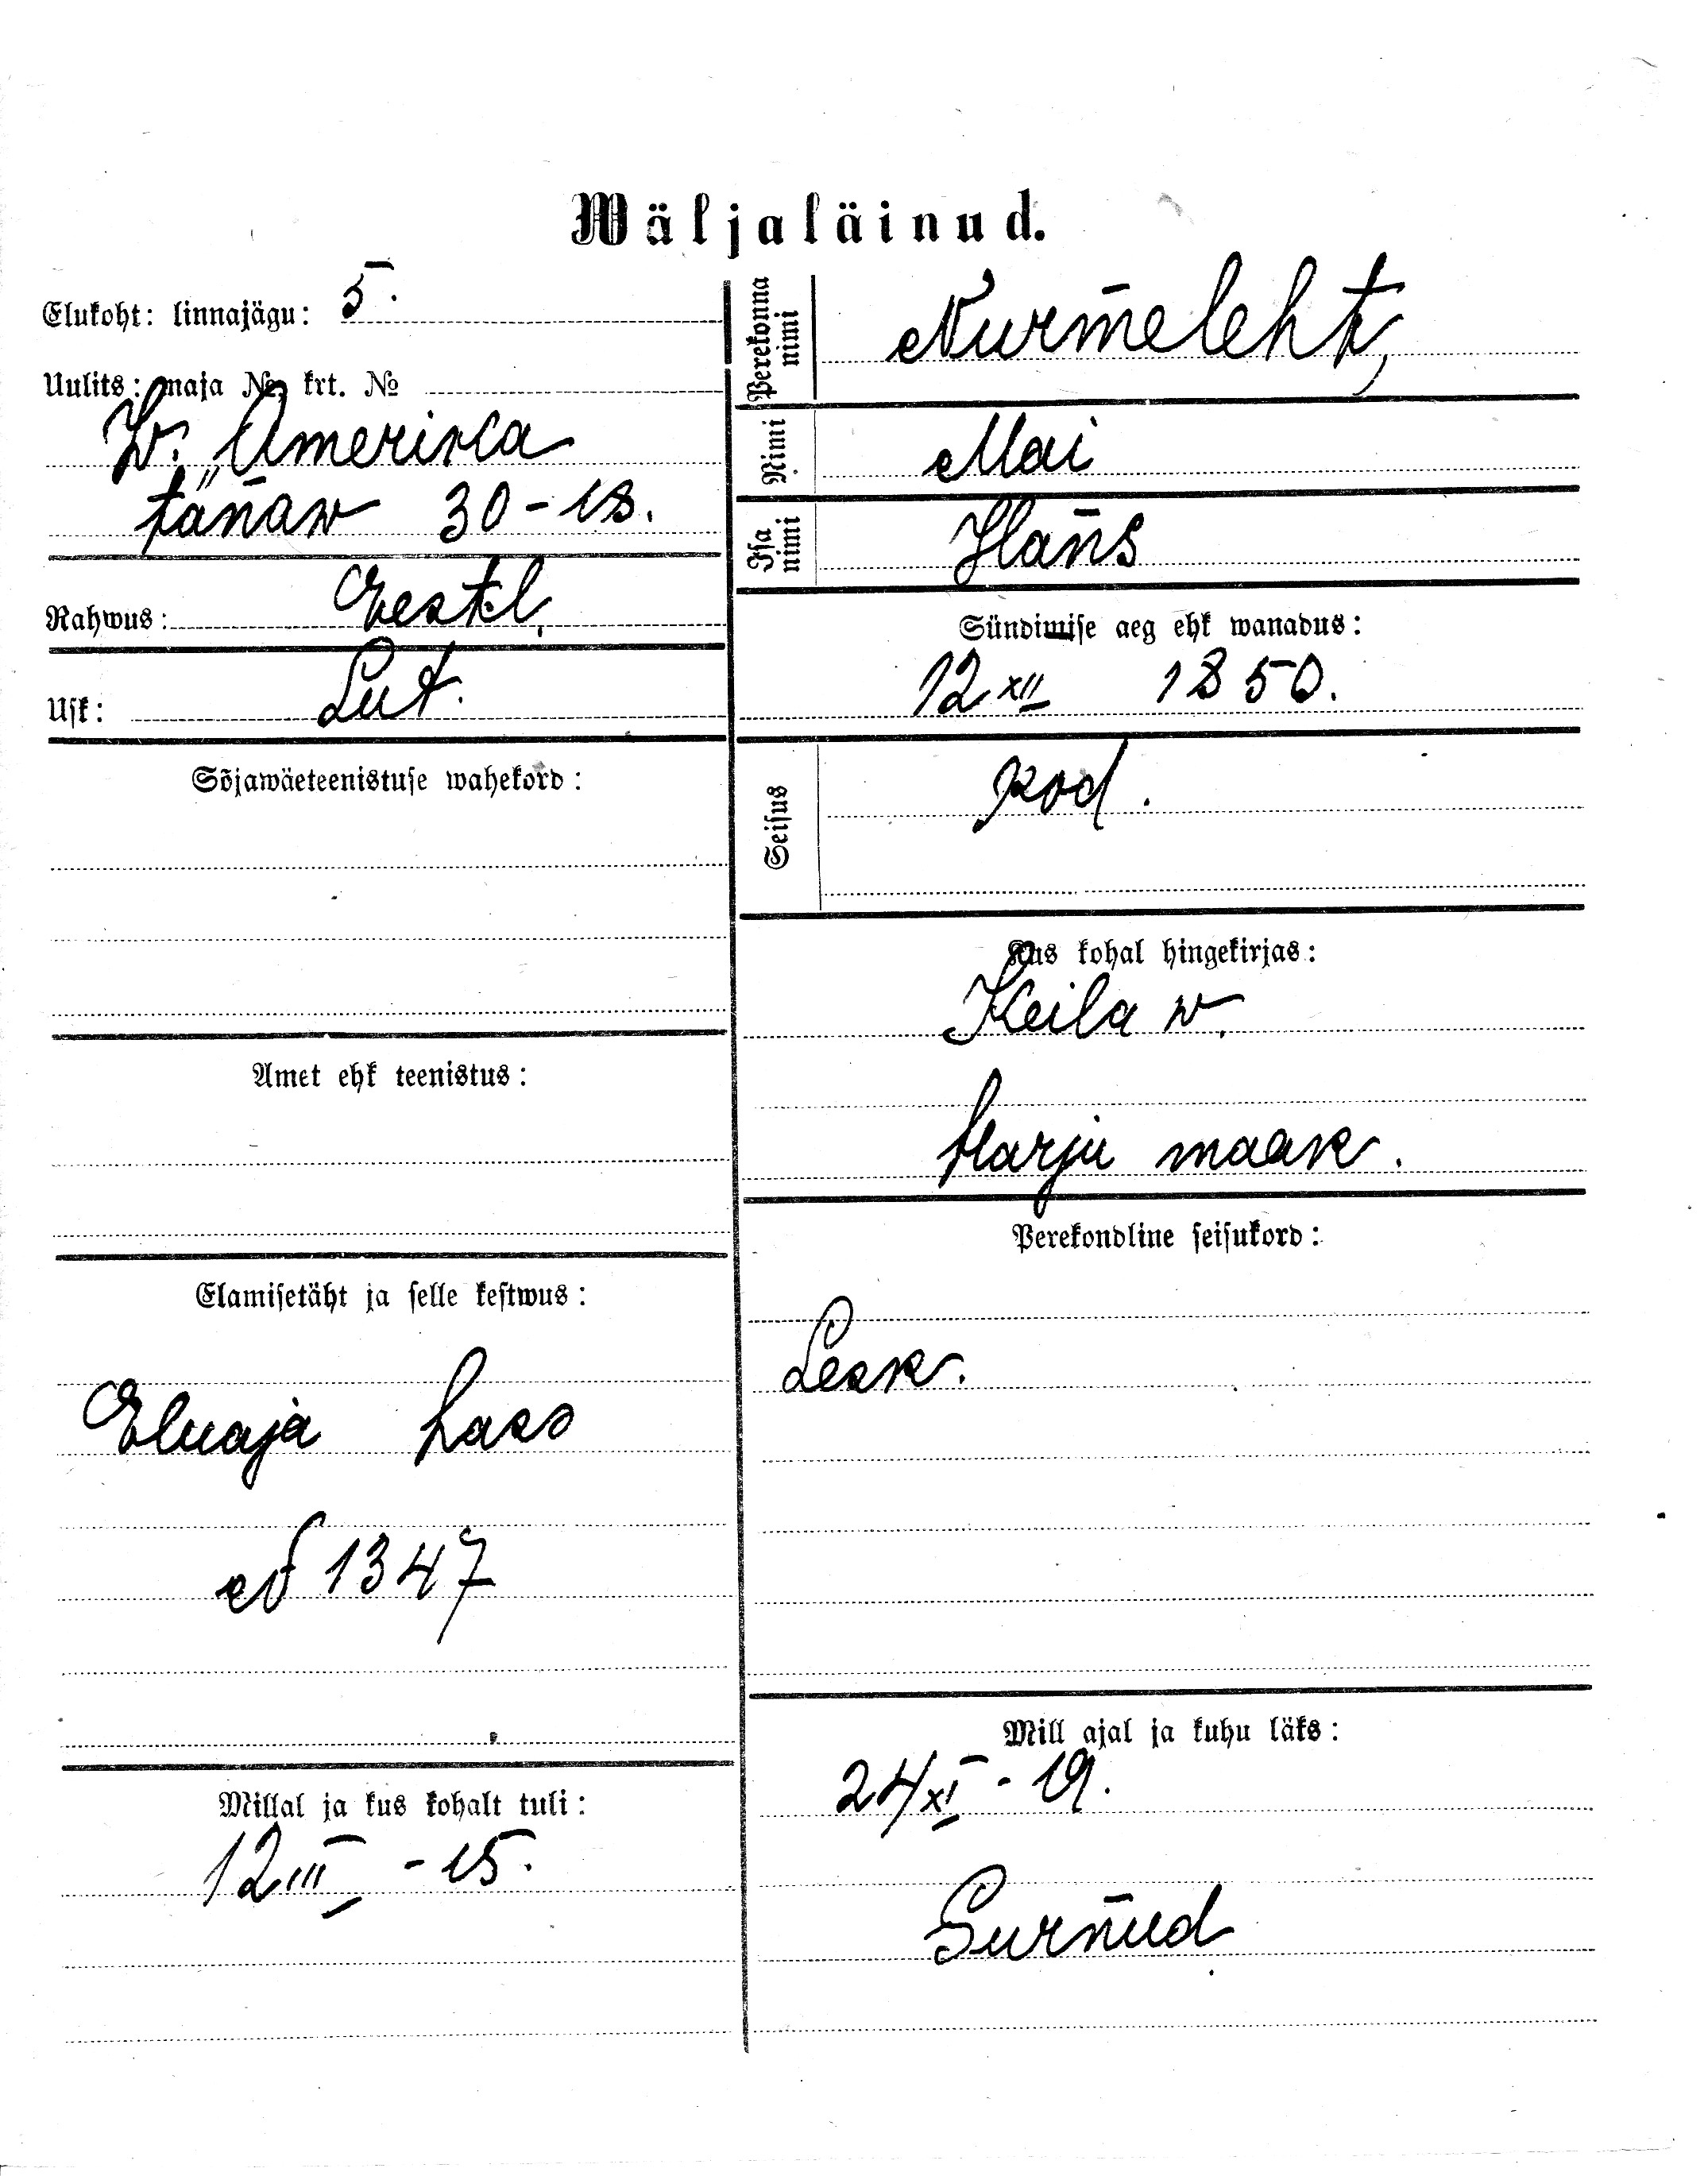 Wäljaläinud.
Elukoht: linnajägu: 5.
Uulits: maja № krt. №
W. Amerika
tänaw 30-18.
Rahwus: Eestl.
Usk: Lut.
Sõjawäeteenistuse wahekord:
Amet ehk teenistus:
Elamisetäht ja selle kestwus:
Eluaja pass
№ 1347
Millal ja kus kohalt tuli:
12 III - 15.
Perekonna nimi
Nurmeleht,
Nimi
Mai
Isa nimi
Hans
Sündimise aeg ehk wanadus:
12 XII 1850.
Seisus
kod.
Kus kohal hingekirjas:
Keila w.
Harju maak.
Perekondline seisukord:
Lesk.
Mill ajal ja kuhu läks:
24 XI - 19.
Surnud